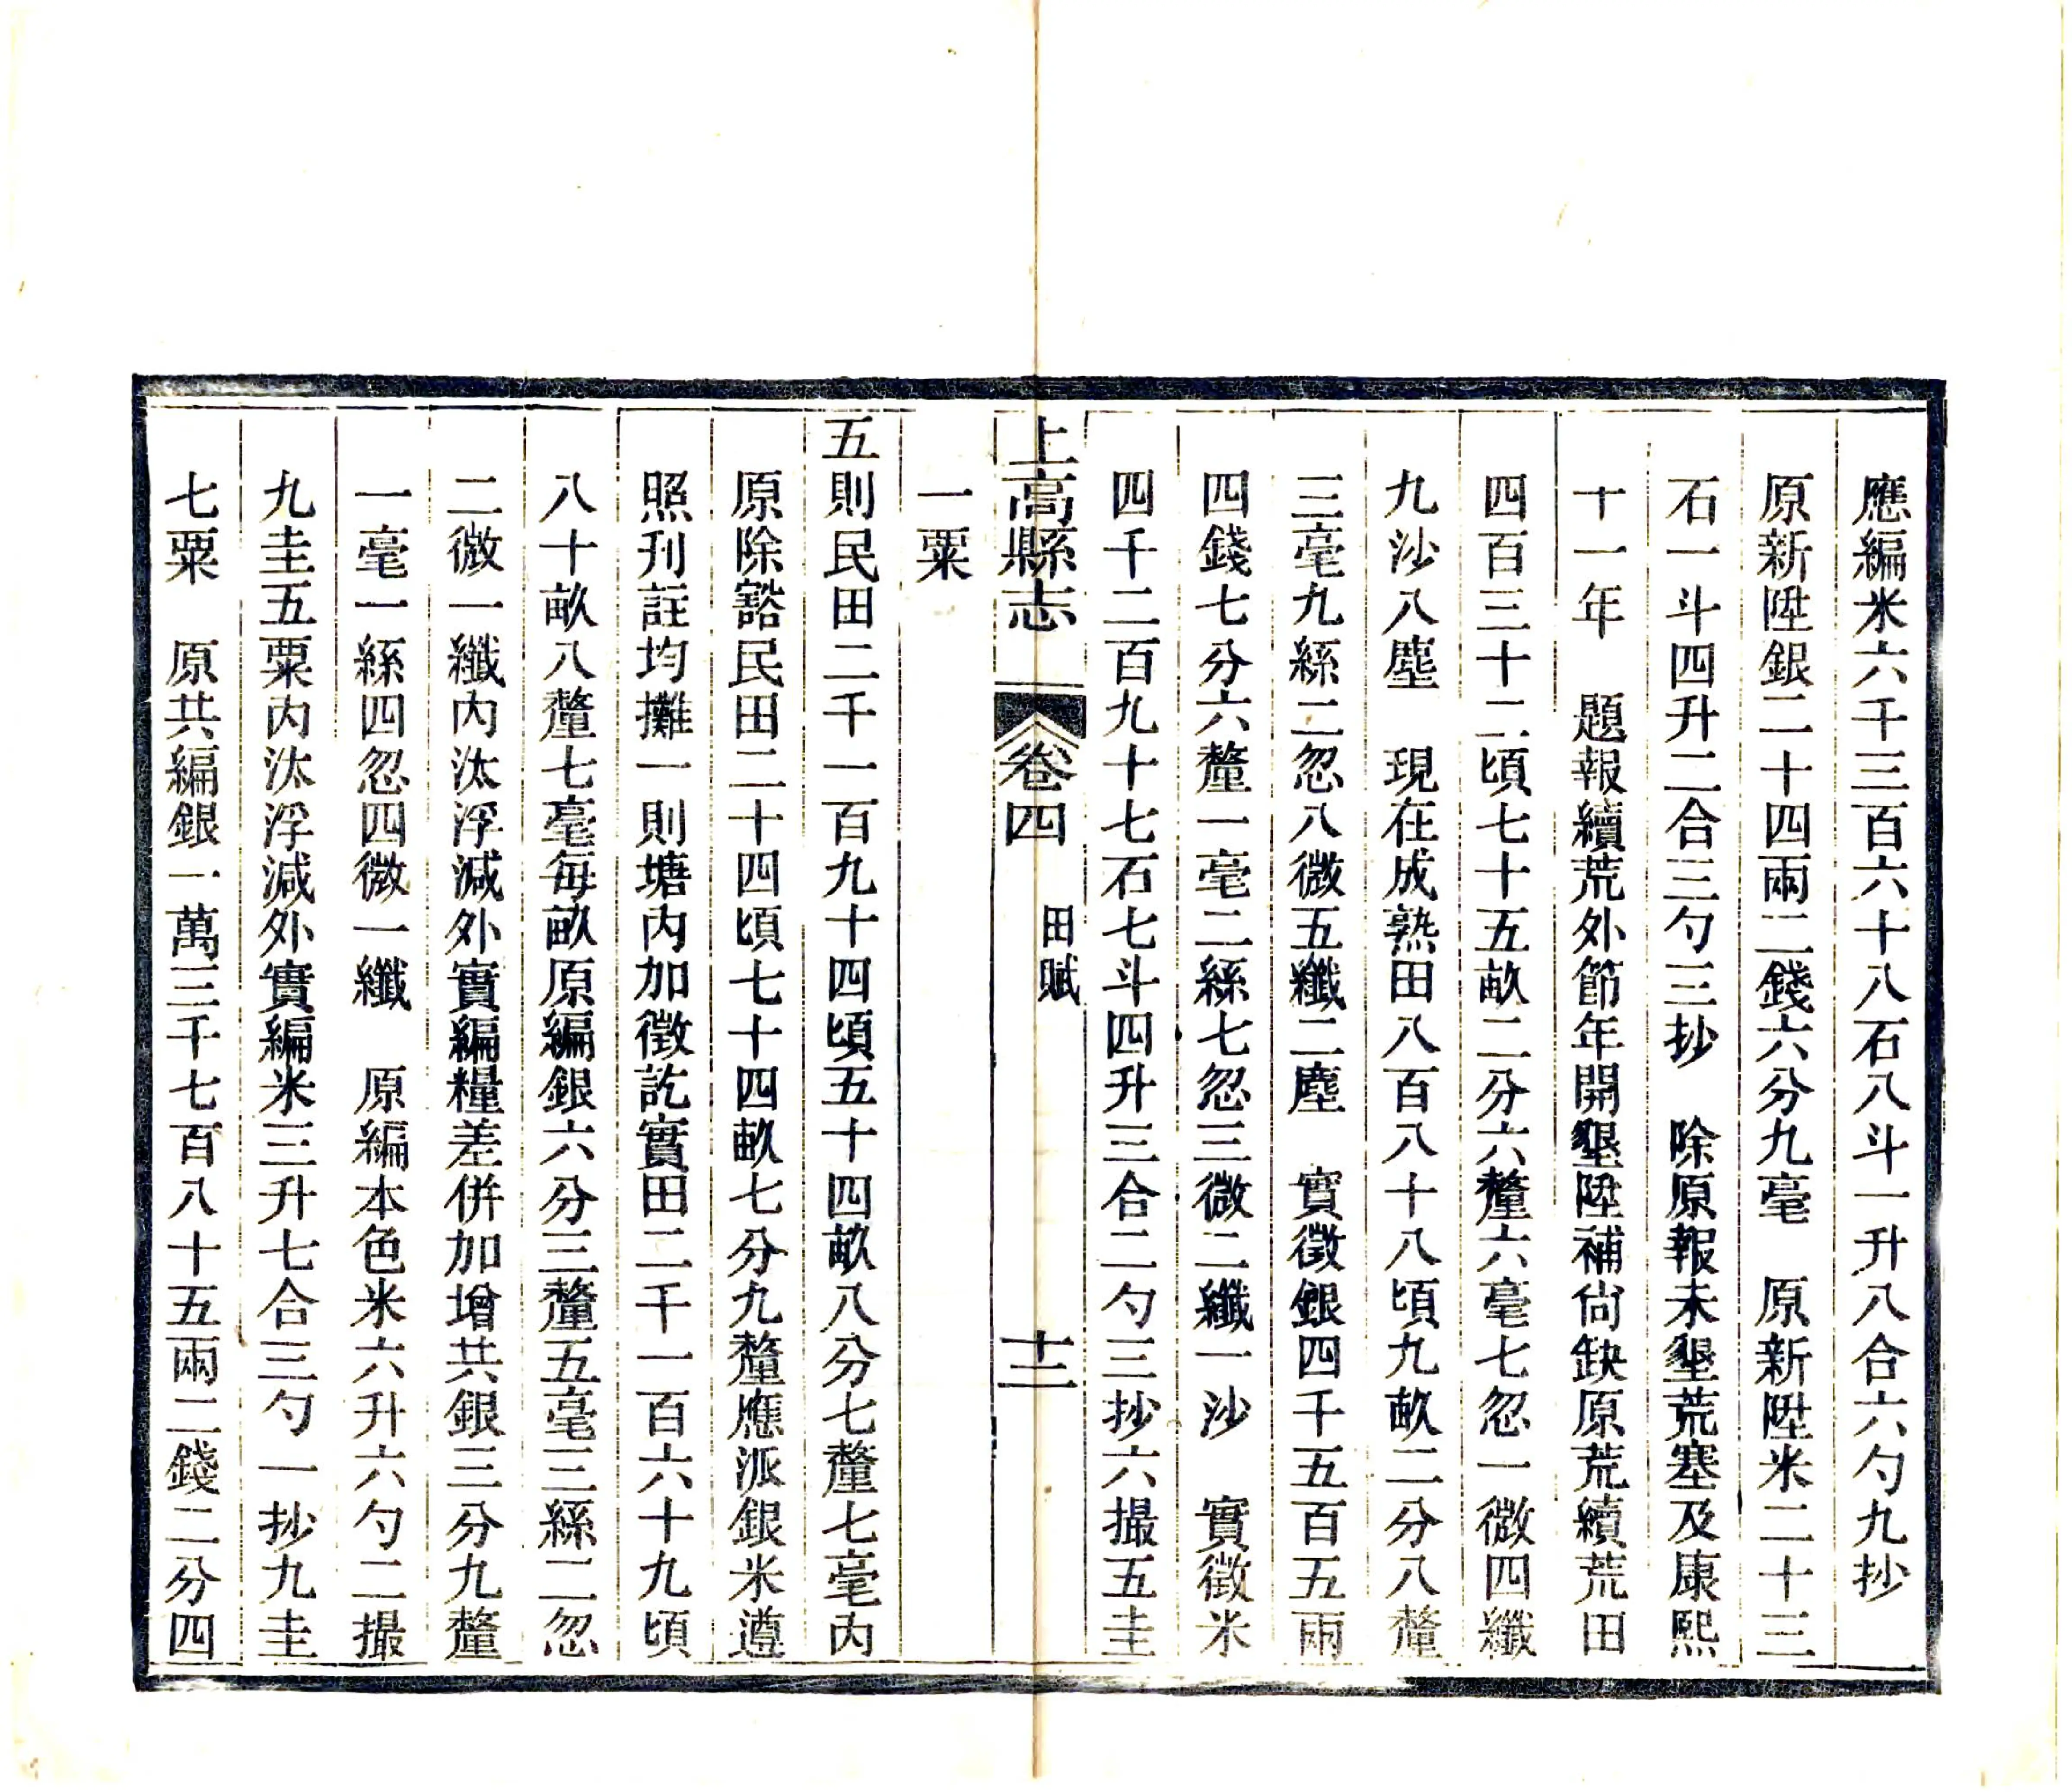 應編米六千三百六十八石八斗一升八合六勺九抄
原新陞銀二十四兩二錢六分九毫　原新陞米二十三
石一斗四升二合三勺三抄　除原報未墾荒塞及康熙
十一年　題報續荒外節年開墾陞補尙缺原荒續荒田
四百三十二頃七十五畝二分六釐六毫七忽一微四纖
九沙八塵　現在成熟田八百八十八頃九畝二分八釐
三毫九絲二忽八微五纖二塵　實徵銀四千五百五兩
四錢七分六釐一毫二絲七忽三微二纖一沙　實徵米
四千二百九十七石七斗四升三合二勺三抄六撮五圭
上高縣志　卷四　田賦　十二
一粟
五則民田二千一百九十四頃五十四畝八分七釐七毫內
原除豁民田二十四頃七十四畝七分九釐應派銀米遵
照刋註均攤一則塘內加徵訖實田二千一百六十九頃
八十畝八釐七毫每畝原編銀六分三釐五毫三絲二忽
二微一纖內汰浮減外實編糧差併加增共銀三分九釐
一毫一絲四忽四微一纖　原編本色米六升六勺二撮
九圭五粟內汰浮減外實編米三升七合三勺一抄九圭
七粟　原共編銀一萬三千七百八十五兩二錢二分四